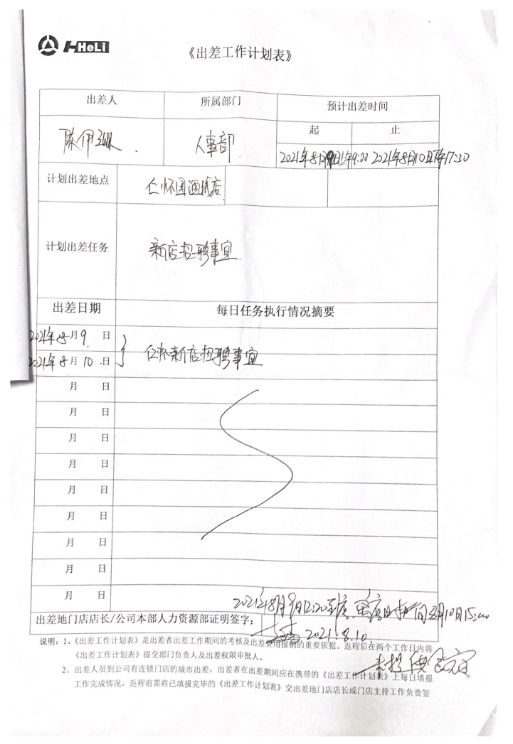 HeLi
《出差工作计划表》
出差人 所属部门 预计出差时间
起 止
陈伊 人事部 2021年8月9日 9:00 2021年8月10日下午17:30
计划出差地点 仁怀国酒城店
计划出差任务 新店招聘事宜
出差日期 每日任务执行情况摘要
2021年8月9日
2021年8月10日 仁怀新店招聘事宜
月 日
月 日
月 日
月 日
月 日
月 日
月 日
月 日
月 日
2021年8月9日12:00到店 离店时间8月10日15:00
出差地门店店长/公司本部人力资源部证明签字:
2021.8.10
说明:1、《出差工作计划表》是出差者出差工作期间的考核及出差费用报酬的重要依据。返程后在两个工作日内将
《出差工作计划表》提交部门负责人及出差权限审批人。
2、出差人员到公司有连锁门店的城市出差,出差者在出差期间应在携带的《出差工作计划表》上每日填报
工作完成情况,返程前需将已填报完毕的《出差工作计划表》交出差地门店店长或门店主持工作负责签